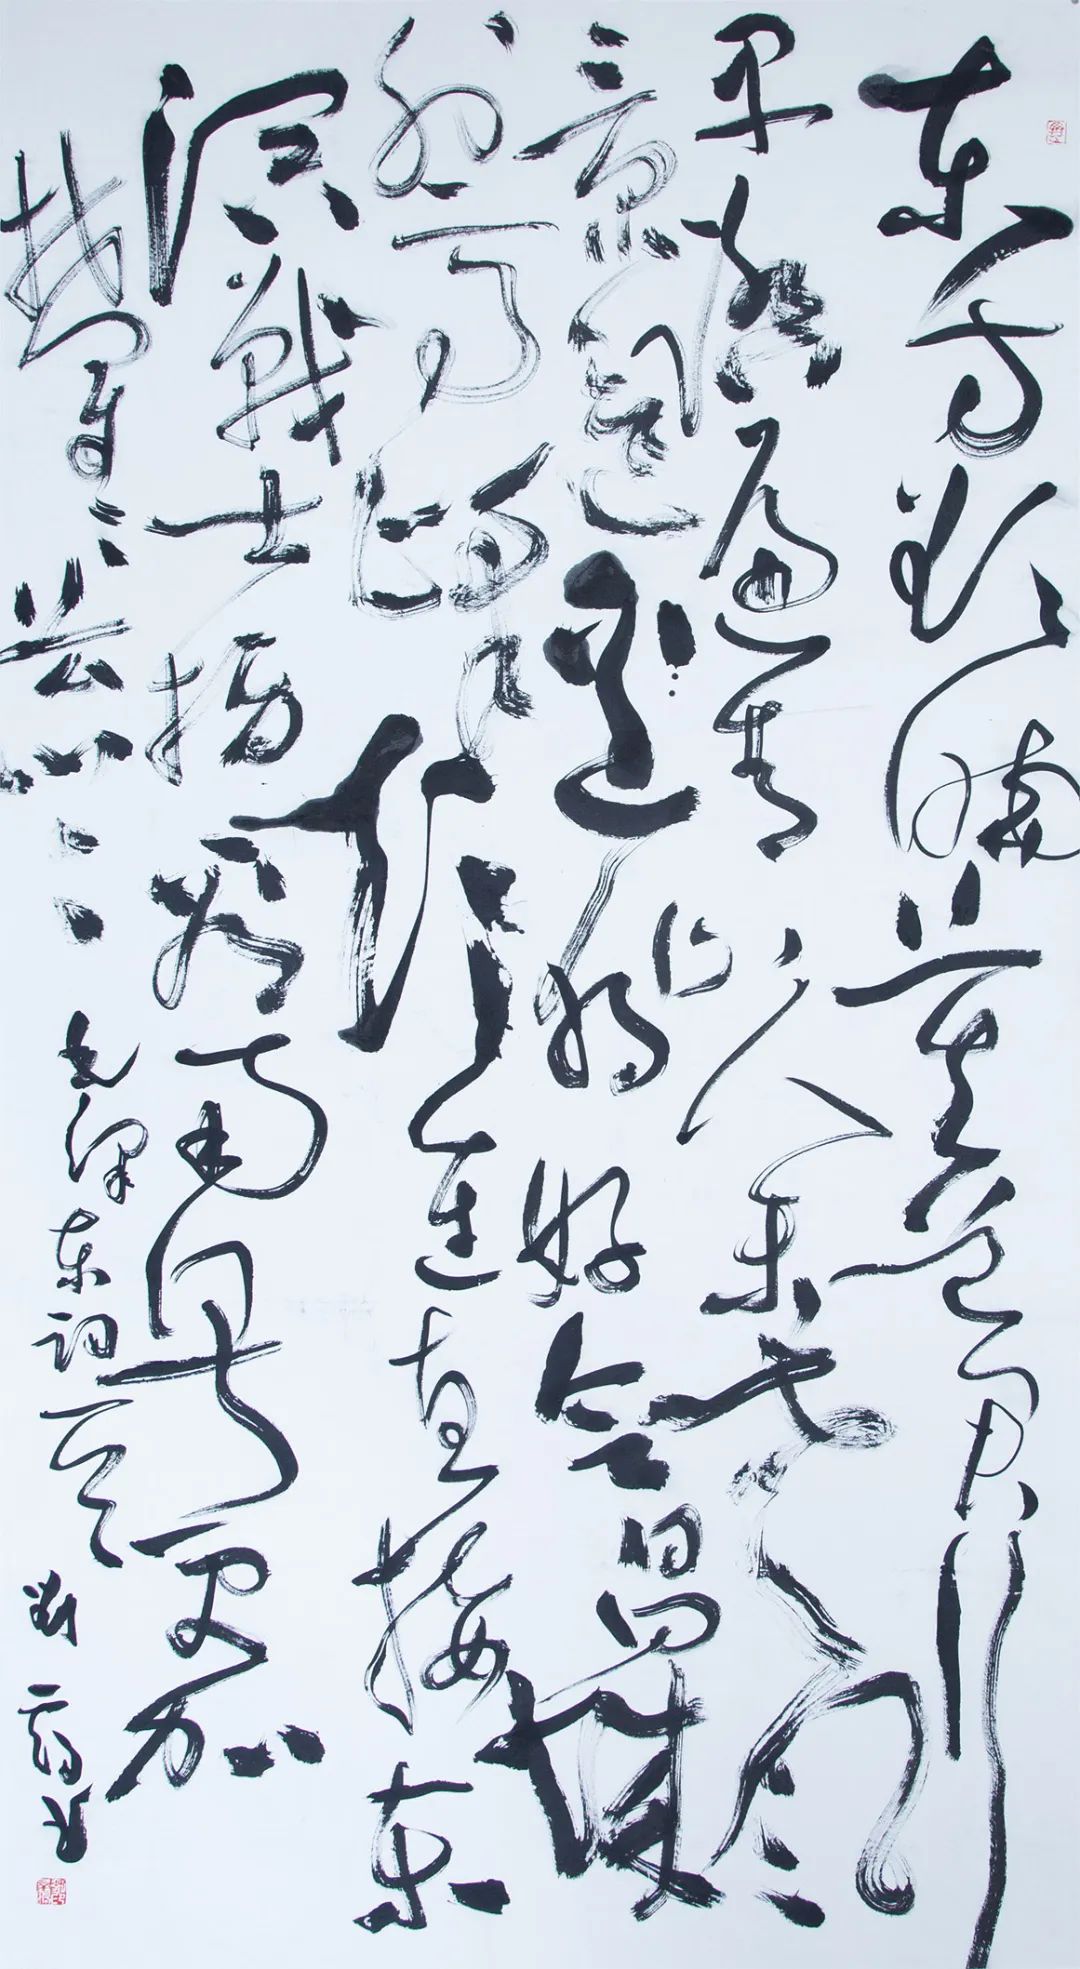 东方欲晓莫道君行
早踏遍青山人未老风
景这边独好会昌城
外高峰颠连直接东
溟战士指看南粤更加
郁々葱々 毛泽东词一首 刘